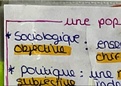 une pop
* sociologique : ense
objective chif
* politique : une n
subjective inde